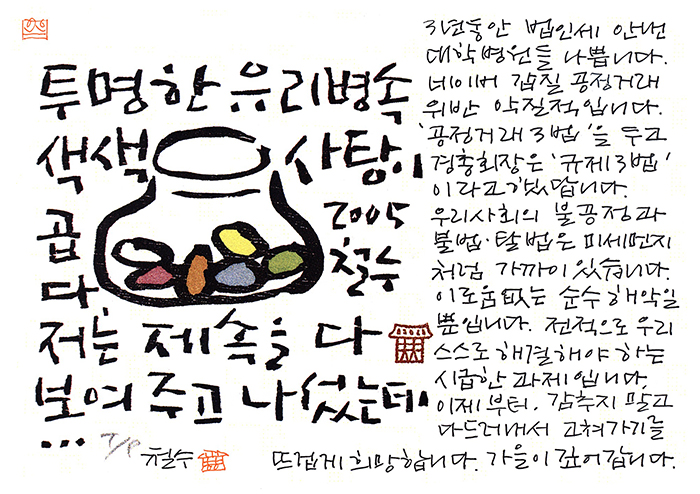 투명한 유리병속
색색 사탕이
곱
다.
2005
철수
저는 제 속을 다
보여 주고 나섰는데
...
T/P
철수
3년동안 법인세 안낸
대학병원들 나쁩니다.
네이버 갑질 공정거래
위반 악질적입니다.
'공정거래 3법'을 두고
경총회장은 '규제 3법'
이라고 했답니다.
우리사회의 불공정과
불법·탈법은 미세먼지
처럼 가까이 있습니다.
이로움없는 순수 해악일
뿐입니다. 전적으로 우리
스스로 해결해야 하는
시급한 과제입니다.
이제부터. 감추지 말고
다드러내서 고쳐가기를
뜨겁게 희망합니다. 가을이 깊어갑니다.